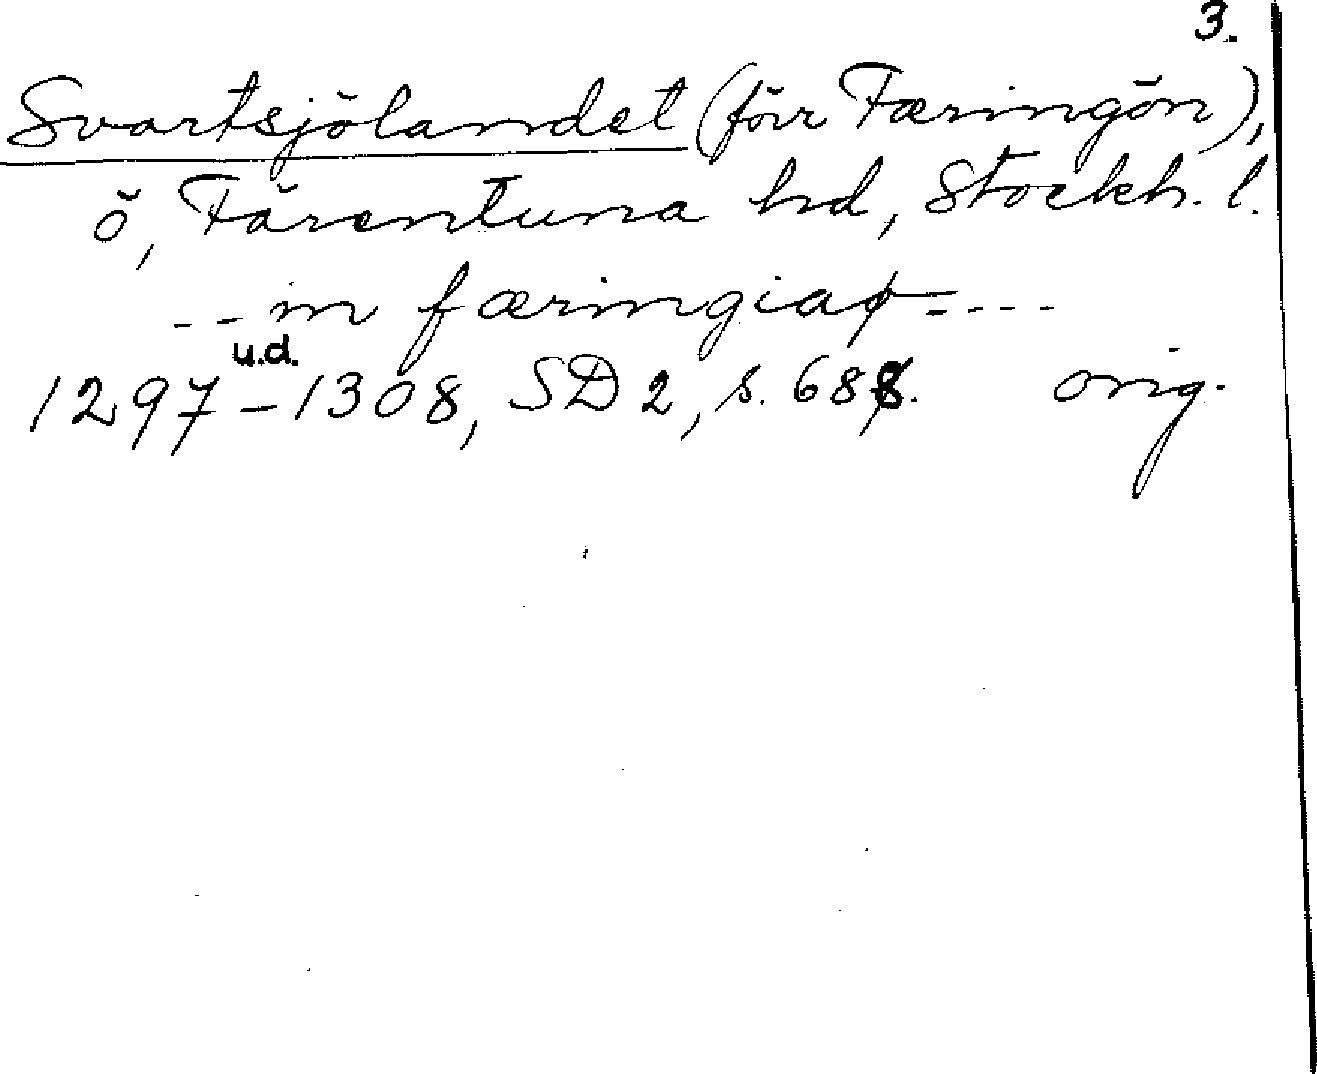 3.
Svartsjölandet (förr Færingön),
ö, Färentuna hd, Stockh. l.
-- in færingiaø - ----
u.d.
1297-1308, SD 2, s. 688. orig.